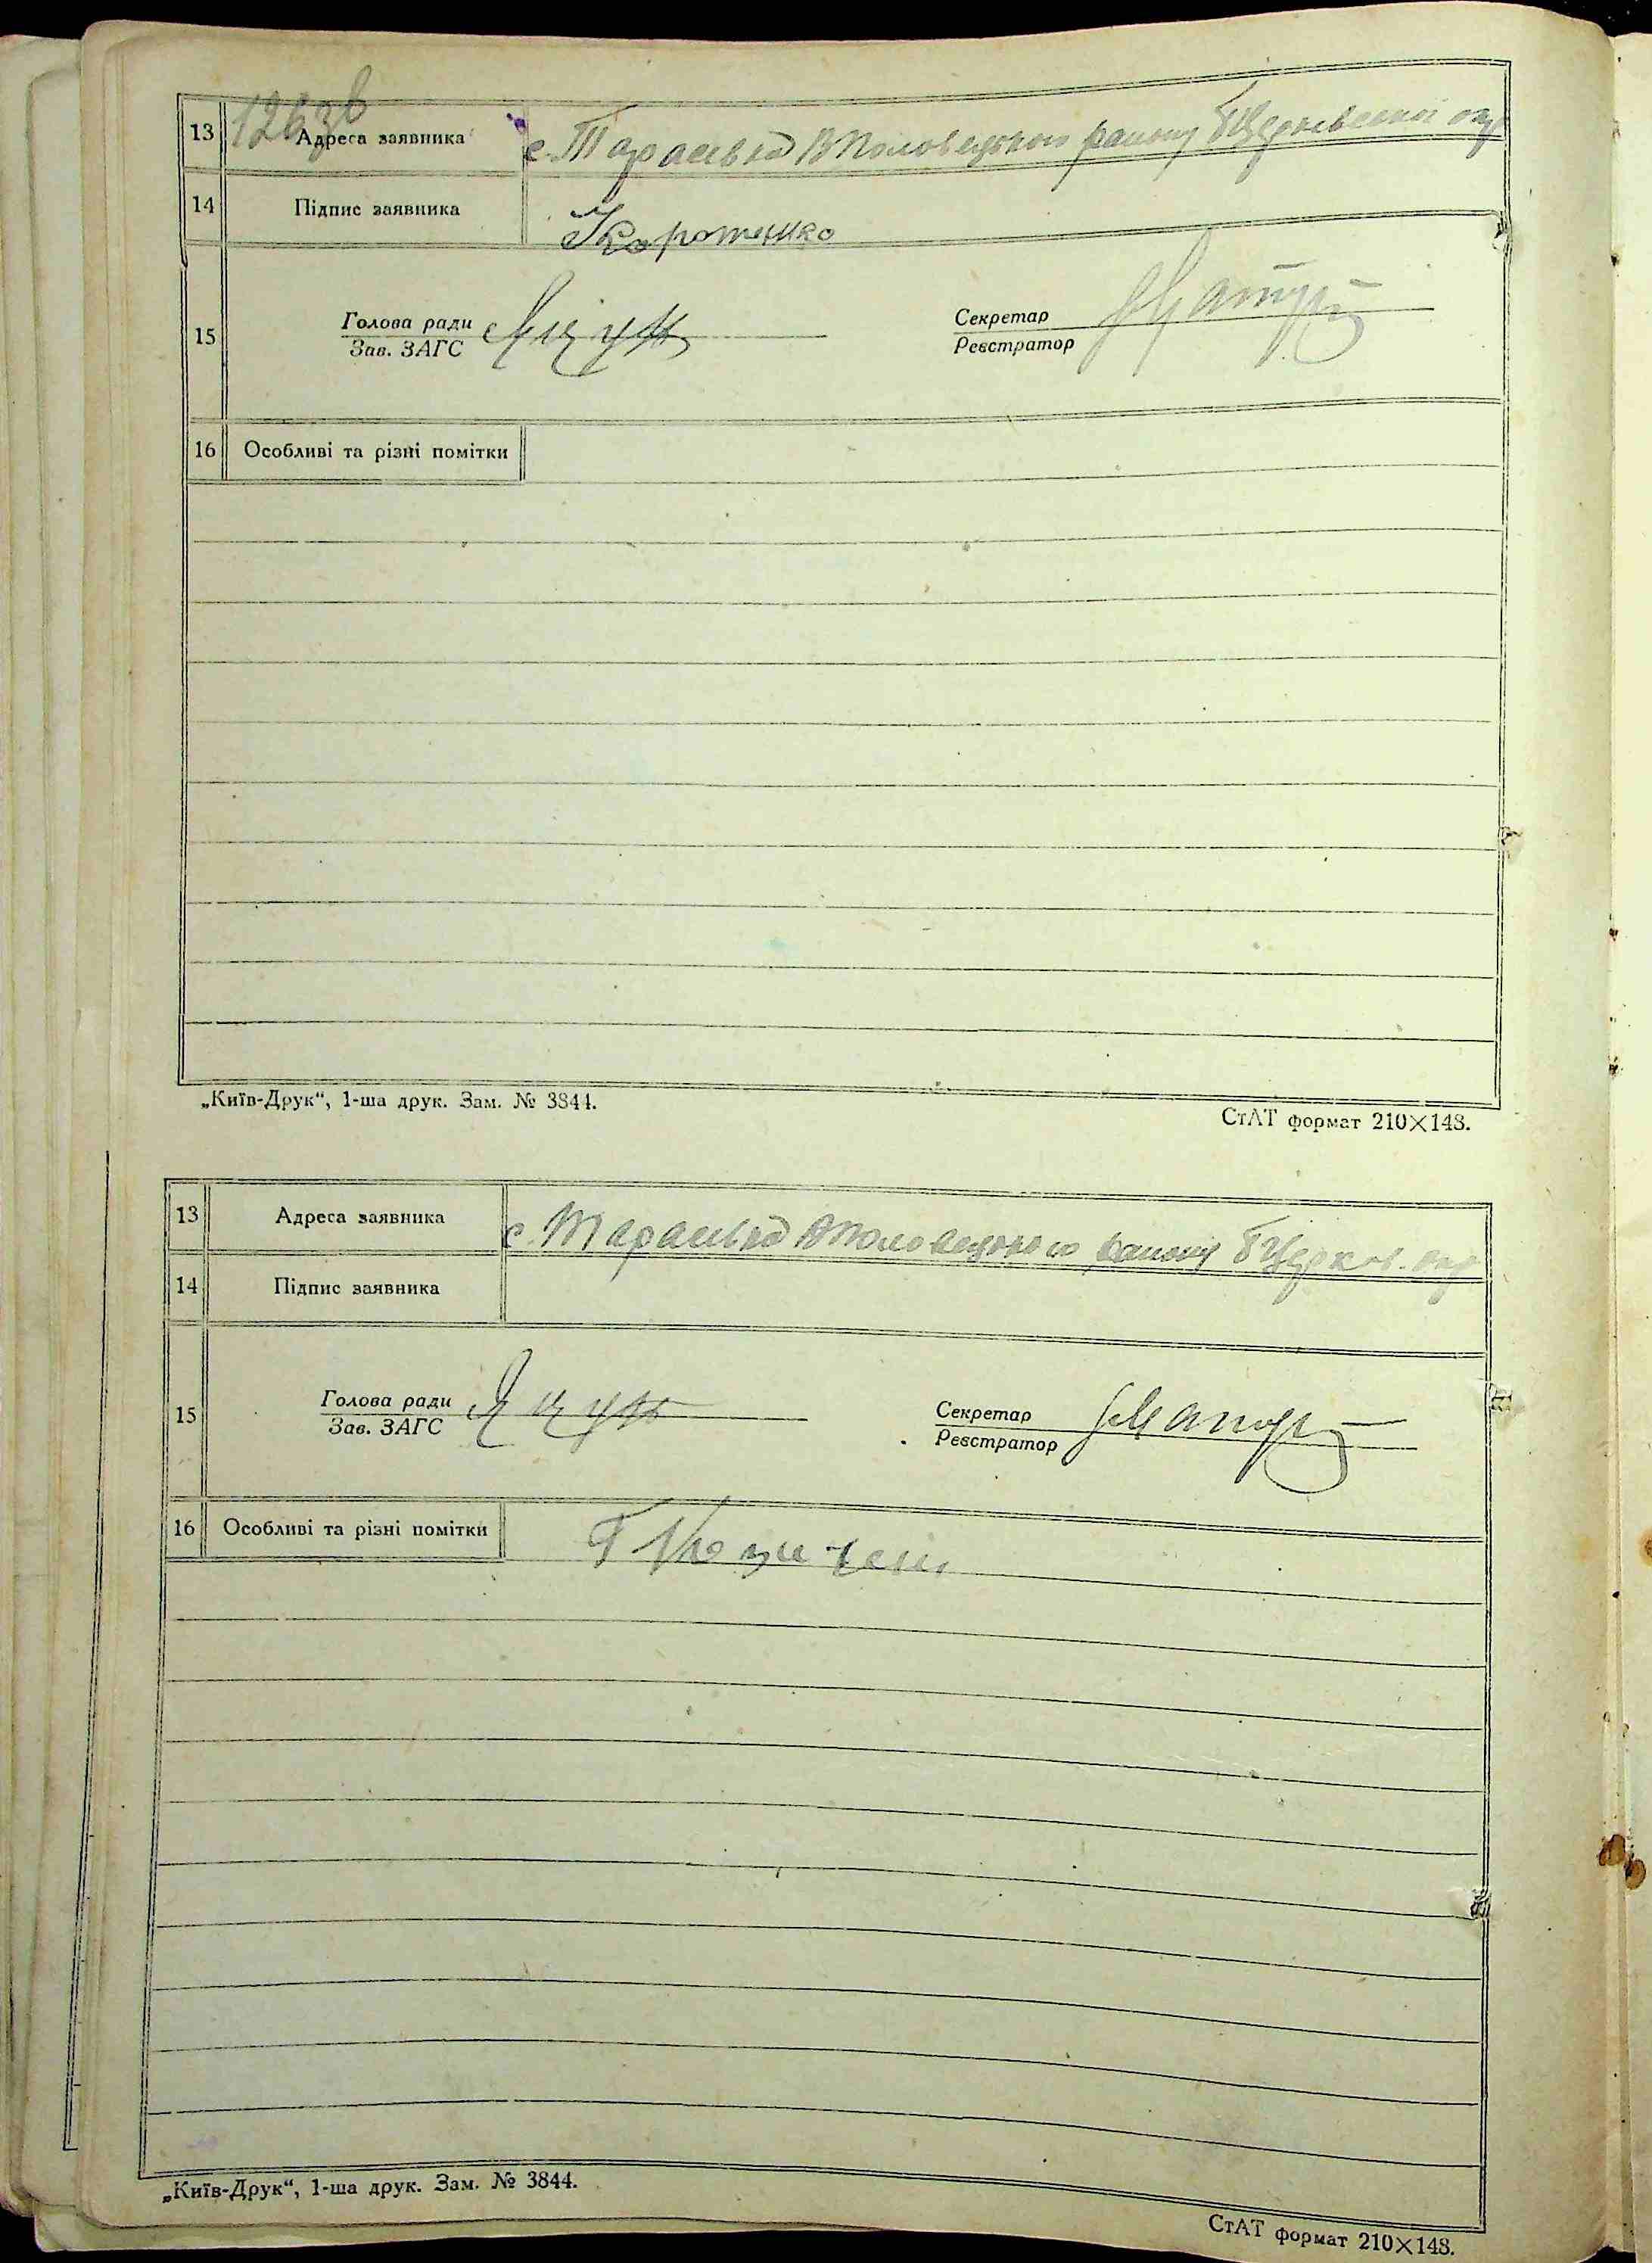 126зв
13 Адреса заявника с. Тарасівка ВПоловецького району БЦерківської окр
14 Підпис заявника Коротенко
15 Голова ради Яцун Секретар
Зав. ЗАГС Реєстратор
16 Особливі та різні помітки
„Київ-Друк“, 1-ша друк. Зам. № 3844.
СтАТ формат 210×148.
13 Адреса заявника с. Тарасівка ВПоловецького району БЦерков. окр
14 Підпис заявника
15 Голова ради Яцун Секретар
Зав. ЗАГС Реєстратор
16 Особливі та різні помітки
„Київ-Друк“, 1-ша друк. Зам. № 3844.
СтАТ формат 210×148.